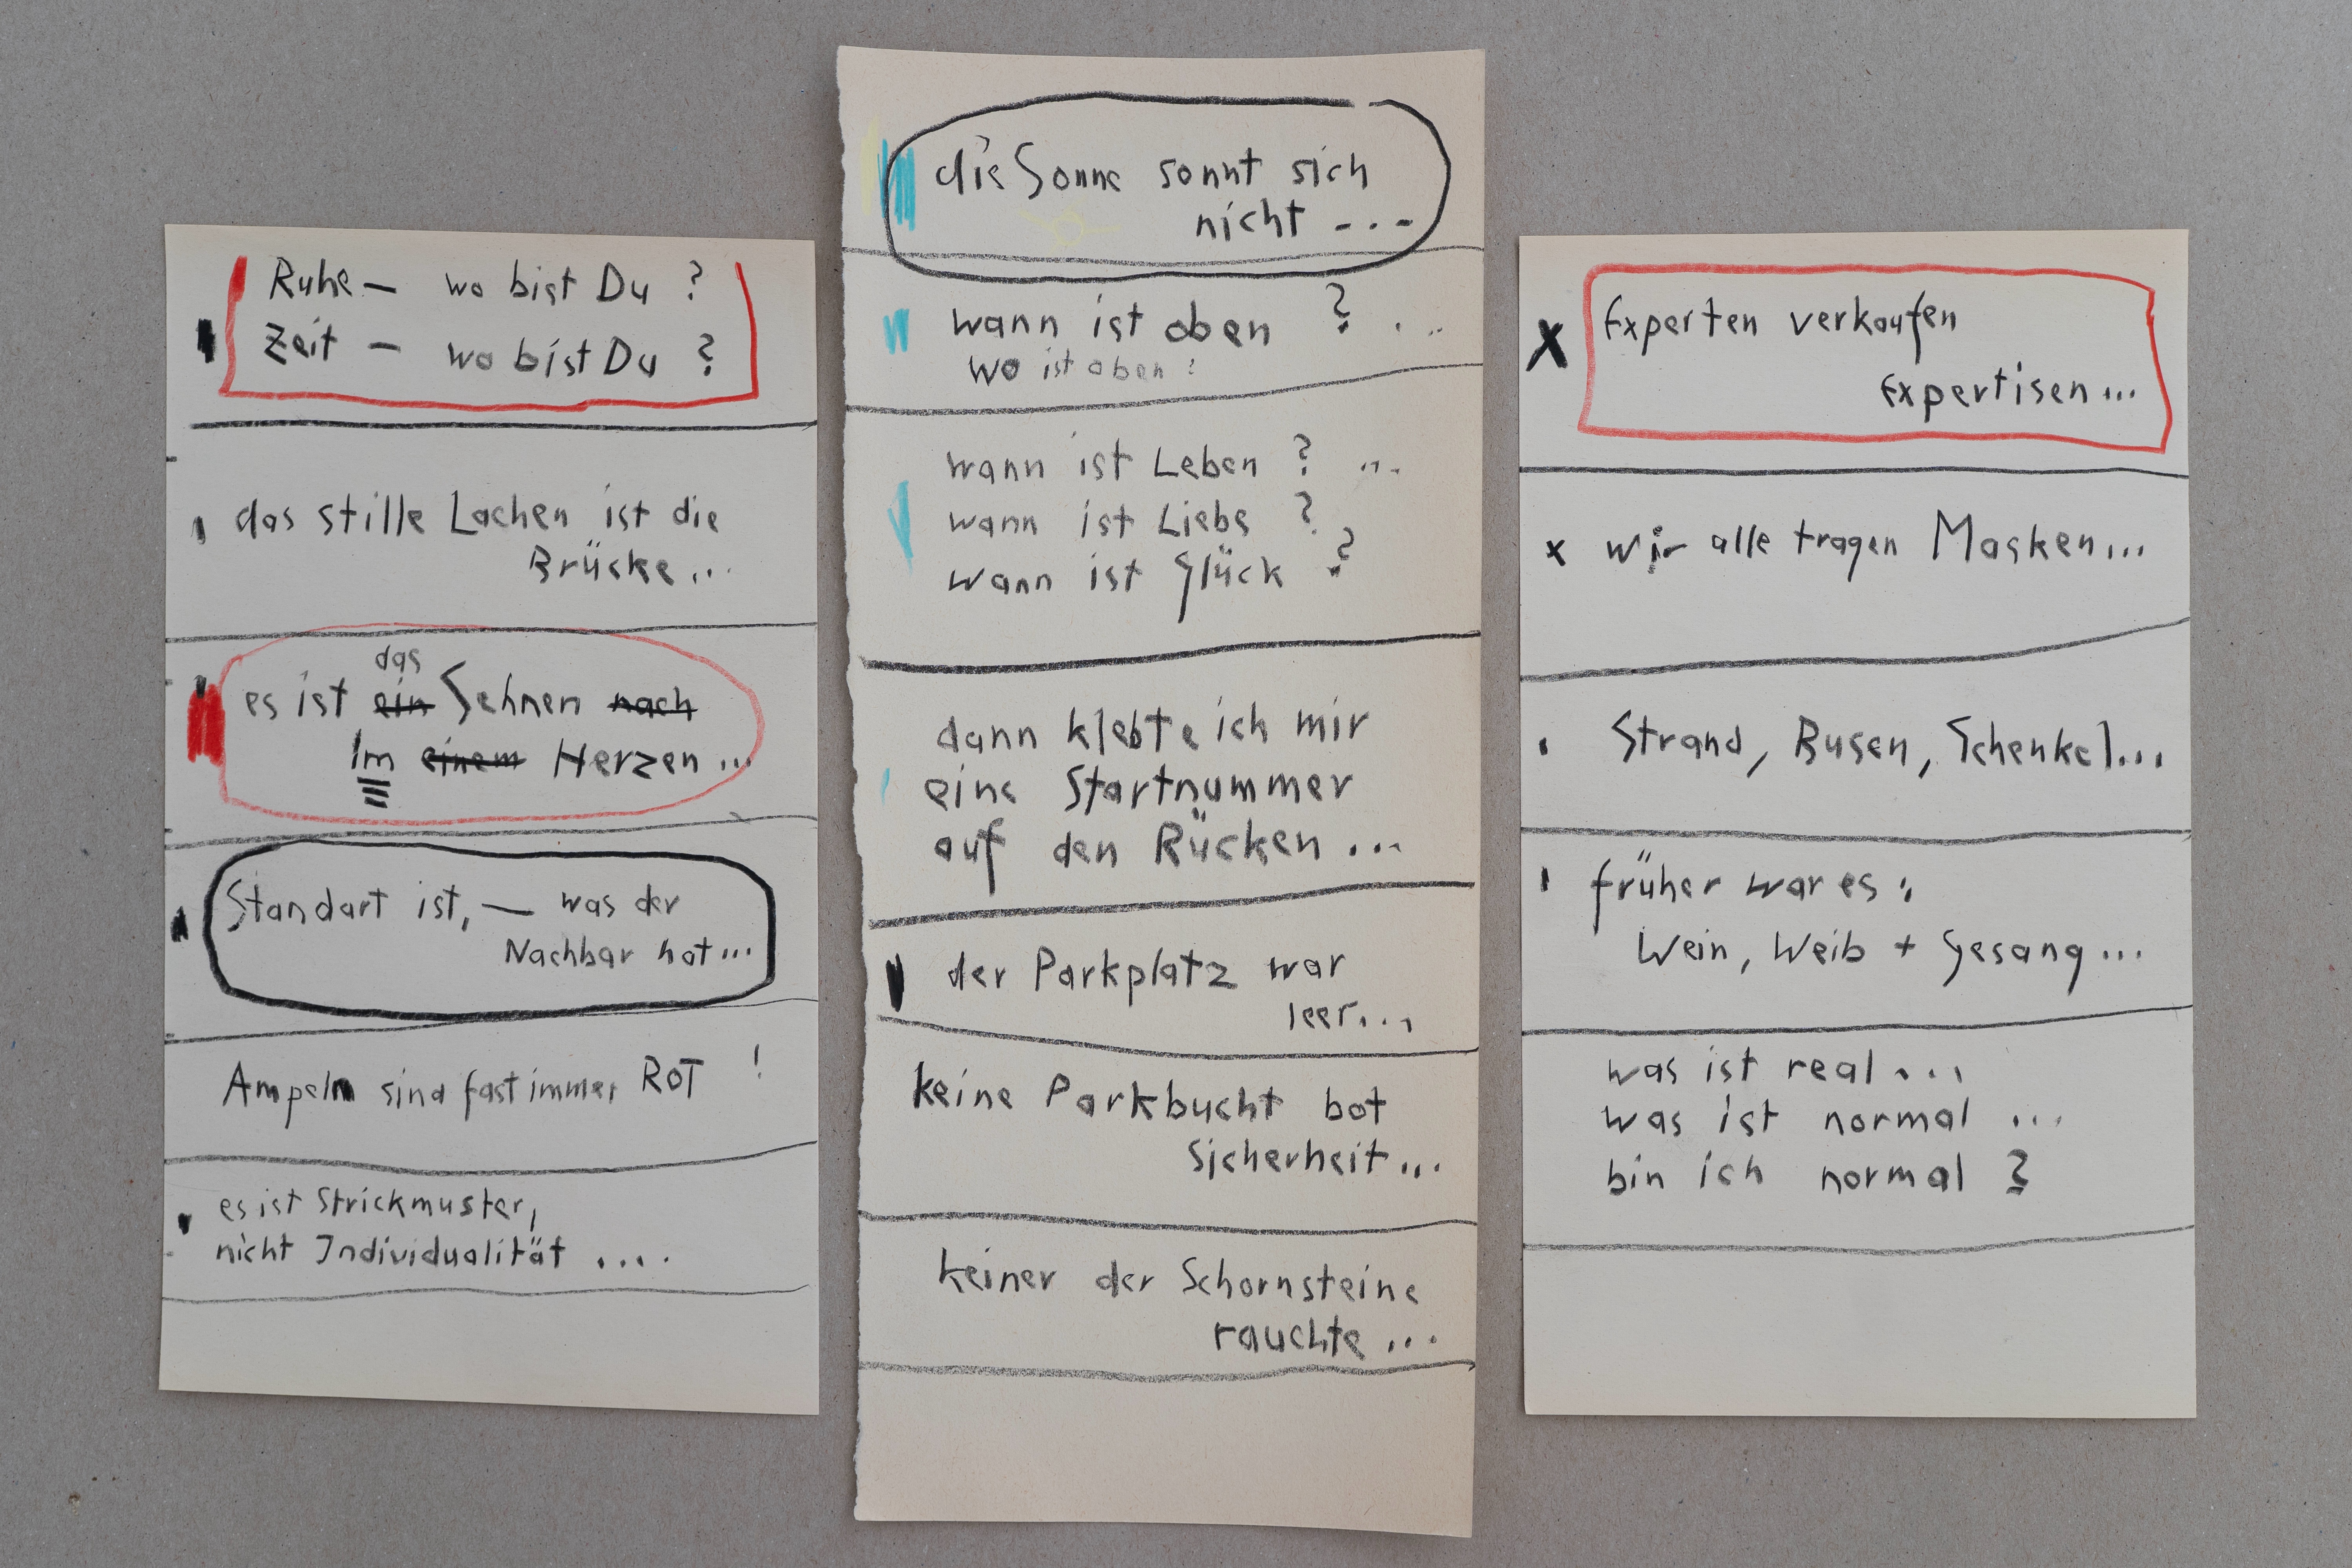 Ruhe — wo bist Du ?
Zeit — wo bist Du ?
das stille Lachen ist die
Brücke...
das
es ist ein Sehnen nach
Im einem Herzen...
Standart ist, — was der
Nachbar hat...
Ampeln sind fast immer ROT !
es ist Strickmuster,
nicht Individualität ....
die Sonne sonnt sich
nicht ...
wann ist oben ? ...
wo ist oben ?
wann ist Leben ? ...
wann ist Liebe ?
wann ist Glück ?
dann klebte ich mir
eine Startnummer
auf den Rücken ...
der Parkplatz war
leer...
keine Parkbucht bot
Sicherheit...
keiner der Schornsteine
rauchte ...
x Experten verkaufen
Expertisen...
x wir alle tragen Masken...
Strand, Busen, Schenkel...
früher war es :
Wein, Weib + Gesang ...
was ist real ...
was ist normal ...
bin ich normal ?